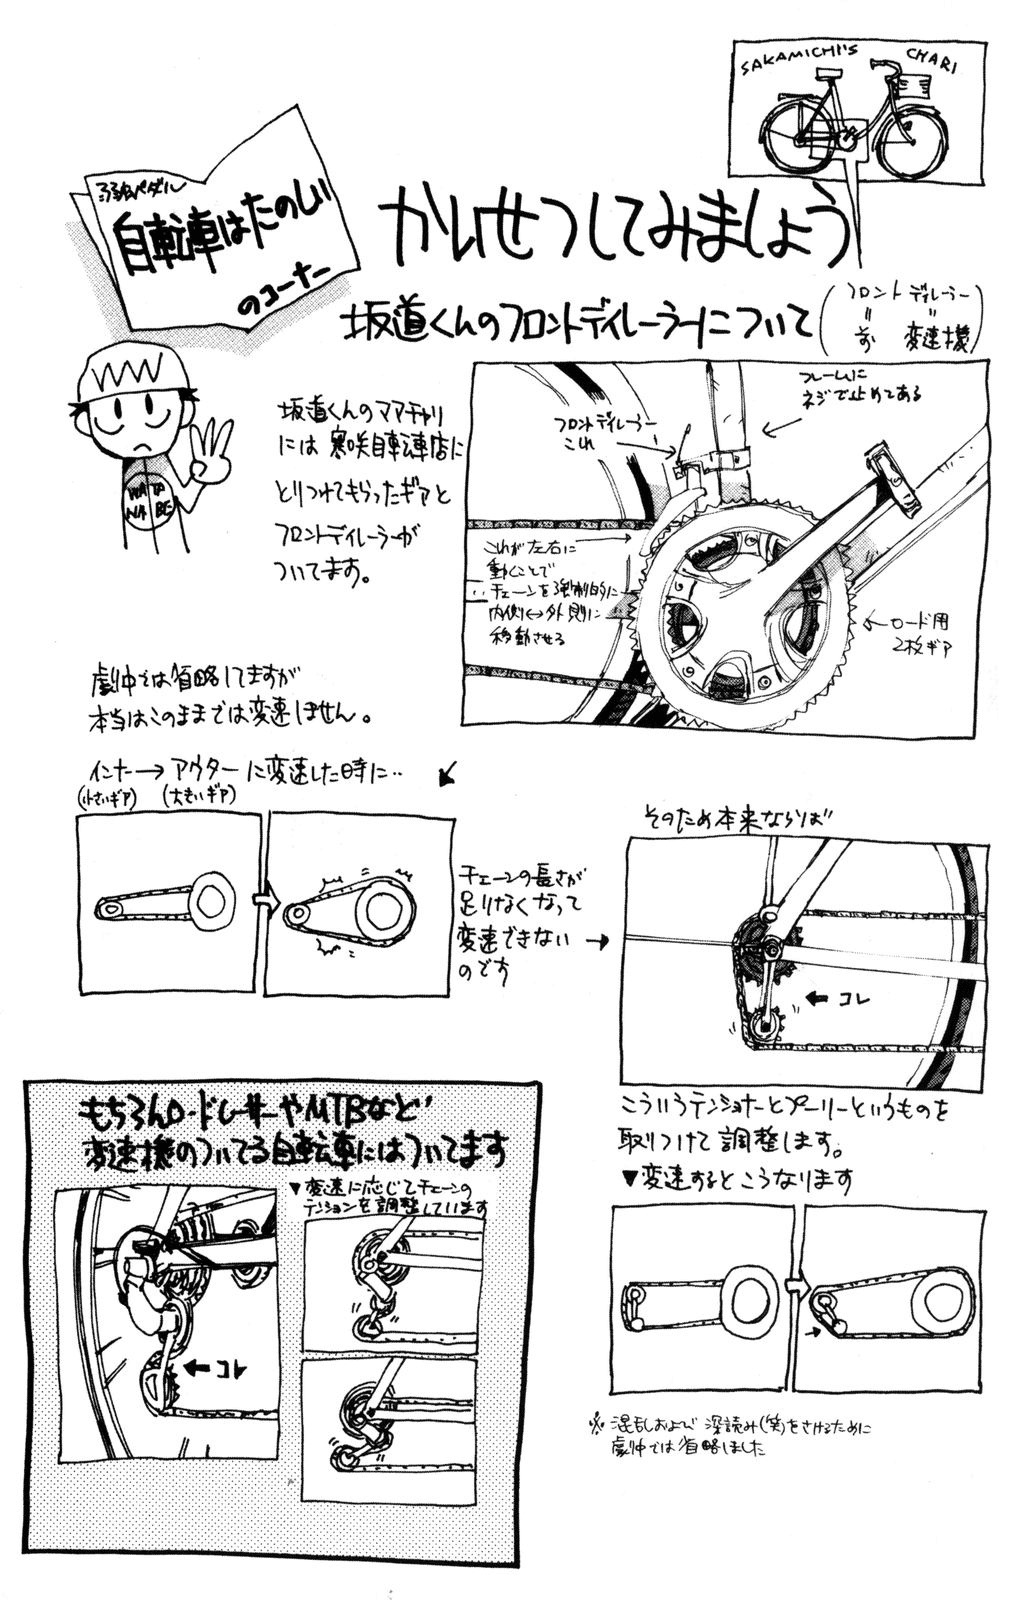 SAKAMICHI'S CHARI
弱虫ペダル
自転車はたのしい
のコーナー
かいせつしてみましょう
坂道くんのフロントディレーラーについて
(フロント ディレーラー
〃 〃
前 変速機)
坂道くんのママチャリ
には寒咲自転車店に
とりつけてもらったギアと
フロントディレーラーが
ついてます。
WATA
NABE
フロントディレーラー
これ
フレームに
ネジで止めてある
これが左右に
動くことで
チェーンを強制的に
内側↔外側に
移動させる
←ロード用
2枚ギア
劇中では省略してますが
本当はこのままでは変速しません。
インナー→アウターに変速した時に‥
(小さいギア) (大きいギア)
チェーンの長さが
足りなくなって
変速できない→
のです
そのため本来ならば
←コレ
こういうテンショナーとプーリーというものを
取りつけて調整します。
▼変速するとこうなります
もちろんロードレーサーやMTBなど
変速機のついてる自転車にはついてます
▼変速に応じてチェーンの
テンションを調整しています
←コレ
※混乱および深読み(笑)をさけるために
劇中では省略しました